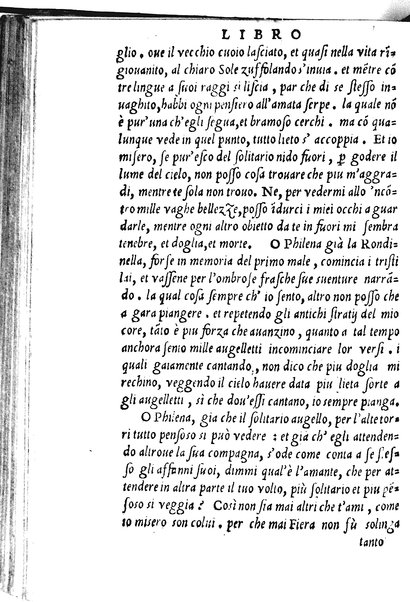 LIBRO
glio. oue il vecchio cuoio lasciato, et quasi nella vita ri
giouanito, al chiaro Sole zuffolando s'inuia. et mẽtre cõ
tre lingue a suoi raggi si liscia, par che di se stesso in
uaghito, habbi ogni pensiero all'amata serpe. la quale nõ
è pur'una ch'egli segua, et bramoso cerchi. ma cõ qua-
lunque vede in quel punto, tutto lieto s' accoppia. Et io
misero, se pur'esco del solitario nido fuori, ꝑ godere il
lume del cielo, non posso cosa trouare che piu m'aggra-
di, mentre te sola non trouo. Ne, per vedermi allo 'ncõ-
tro mille vaghe bellezze, posso īdurci i miei occhi a guar
darle, mentre ogni altro obietto da te in fuori mi sembra
tenebre, et doglia, et morte. O Philena già la Rondi-
nella, forse in memoria del primo male, comincia i tristi
lai, et vassene per l'ombrose frasche sue suenture narrã-
do. la qual cosa sempre ch' io sento, altro non posso che
a gara piangere. et repetendo gli antichi stratij del mio
core, tãto è piu forza che auanzino, quanto a tal tempo
anchora sento mille augelletti incominciare lor versi. i
quali gaiamente cantando, non dico che piu doglia mi
rechino, veggendo il cielo hauere data piu lieta sorte a
gli augelletti, si che dou'essi cantano, io sempre pianga.
O Philena, gia che il solitario augello, per l'alte tor-
ri tutto pensoso si può vedere : et già ch' egli attenden-
do altroue la sua compagna, s'ode come conta a se stes-
so gli affanni suoi, dimmi qual'è l'amante, che per at-
tendere in altra parte il tuo volto, più solitario et piu pẽ-
soso si veggia ? Così non sia mai altri che t'ami, come
io misero son colui. per che mai Fiera non fù solinga
tanto